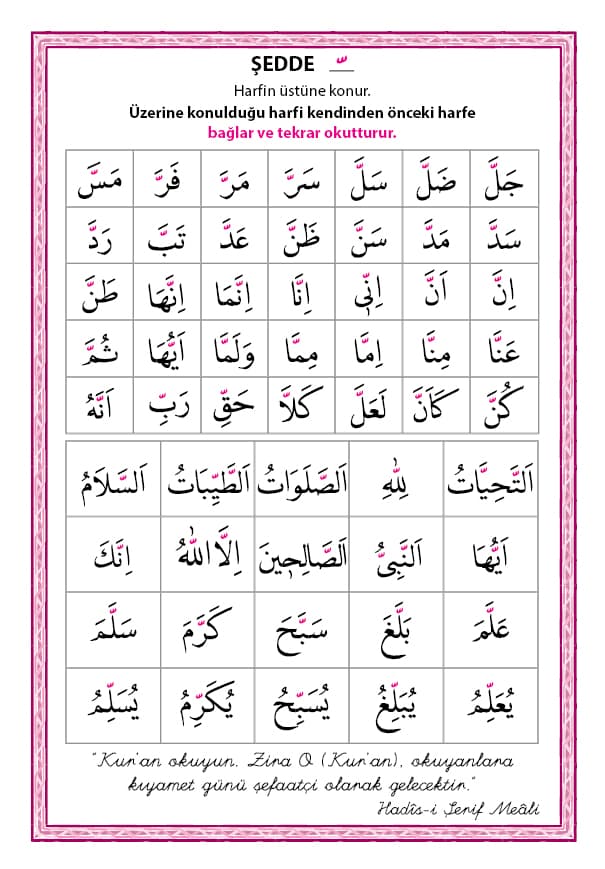 ŞEDDE ـّـ
Harfin üstüne konur.
Üzerine konulduğu harfi kendinden önceki harfe
bağlar ve tekrar okutturur.
جَلَّ ضَلَّ سَلَّ سَرَّ مَرَّ فَرَّ مَسَّ
سَدَّ مَدَّ سَنَّ ظَنَّ عَدَّ تَبَّ رَدَّ
اِنَّ اَنَّ اِنّٖى اِنَّا اِنَّمَا اِنَّهَا طَنَّ
عَنَّا مِنَّا اِمَّا مِمَّا وَلَمَّا اَيُّهَا ثُمَّ
كُنَّ كَاَنَّ لَعَلَّ كَلاَّ حَقِّ رَبِّ اَنَّهُ
اَلتَّحِيَّاتُ لِلّٰهِ اَلصَّلَوَاتُ اَلطَّيِّبَاتُ اَلسَّلَامُ
اَيُّهَا اَلنَّبِىُّ اَلصَّالِحٖينَ اِلَّا اللّٰهُ اِنَّكَ
عَلَّمَ بَلَّغَ سَبَّحَ كَرَّمَ سَلَّمَ
يُعَلِّمُ يُبَلِّغُ يُسَبِّحُ يُكَرِّمُ يُسَلِّمُ
"Kur'an okuyun. Zira O (Kur'an), okuyanlara
kıyamet günü şefaatçi olarak gelecektir."
Hadîs-i Şerif Meâli